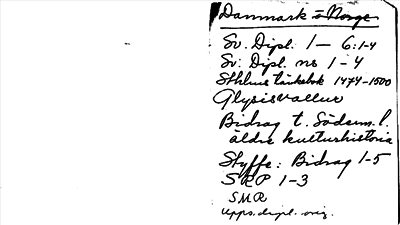 Danmark o Norge
Sv. Dipl. 1 — 6:1-4
Sv. Dipl. ns 1 - 4
Sthlms tänkebok 1474-1500
Glysisvallur
Bidrag t. Söderm. l.
äldre kulturhistoria
Styffe: Bidrag 1-5
SRP 1-3
SMR
Upps. dipl. orig.